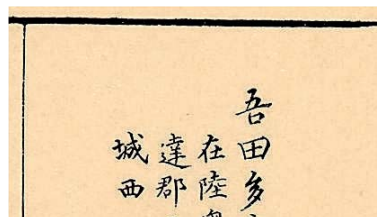 吾田多
在陸奥
達郡
城西